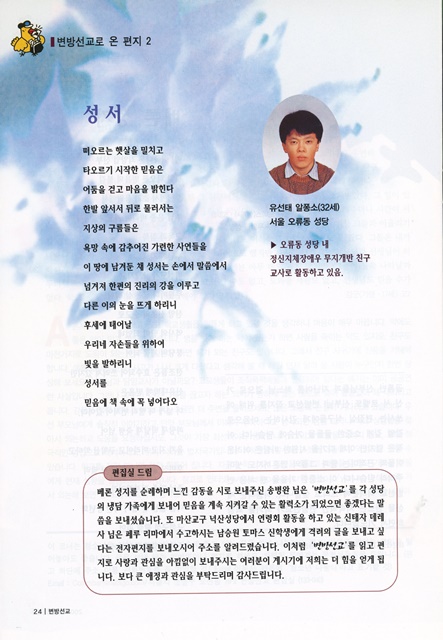 변방선교로 온 편지 2
성 서
떠오르는 햇살을 밀치고
타오르기 시작한 믿음은
어둠을 걷고 마음을 밝힌다
한발 앞서서 뒤로 물러서는
지상의 구름들은
욕망 속에 감추어진 가련한 사연들을
이 땅에 남겨둔 채 성서는 손에서 말씀에서
넘겨저 한편의 진리의 강을 이루고
다른 이의 눈을 뜨게 하리니
후세에 태어날
우리네 자손들을 위하여
빛을 발하리니
성서를
믿음에 책 속에 꼭 넣어다오
유선태 알퐁소(32세)
서울 오류동 성당
▶ 오류동 성당 내
정신지체장애우 무지개반 친구
교사로 활동하고 있음.
편집실 드림
베론 성지를 순례하며 느낀 감동을 시로 보내주신 송병완 님은 '변방선교'를 각 성당
의 냉담 가족에게 보내어 믿음을 계속 지켜갈 수 있는 활력소가 되었으면 좋겠다는 말
씀을 보내셨습니다. 또 마산교구 덕산성당에서 연령회 활동을 하고 있는 신태자 데레
사 님은 페루 리마에서 수고하시는 남승원 토마스 신학생에게 격려의 글을 보내고 싶
다는 전자편지를 보내오시어 주소를 알려드렸습니다. 이처럼 '변방선교'를 읽고 편
지로 사랑과 관심을 아낌없이 보내주시는 여러분이 계시기에 저희는 더 힘을 얻게 됩
니다. 보다 큰 애정과 관심을 부탁드리며 감사드립니다.
24 | 변방선교